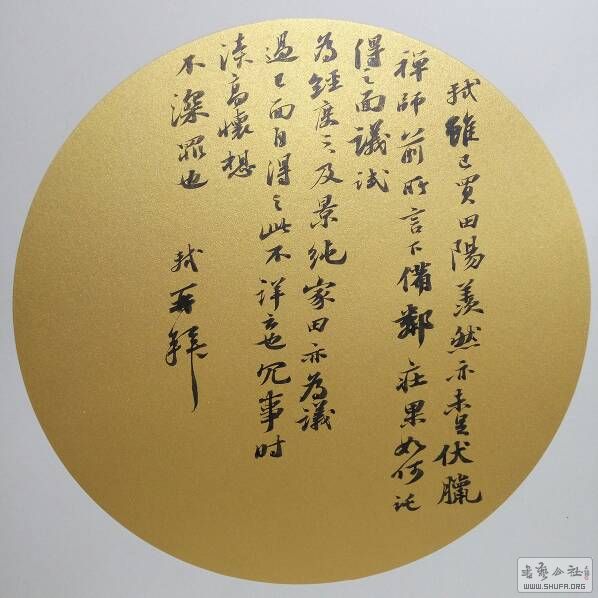 軾雖已買田陽羨然亦未足伏臘
禪師前所言下備鄰莊果如何託
得之面議試
為經度之及景純家田亦為議
過已面白得之此不詳云也冗事时
瀆高懷想
不深罪也 軾再拜
书艺公社
WWW.SHUFA.ORG